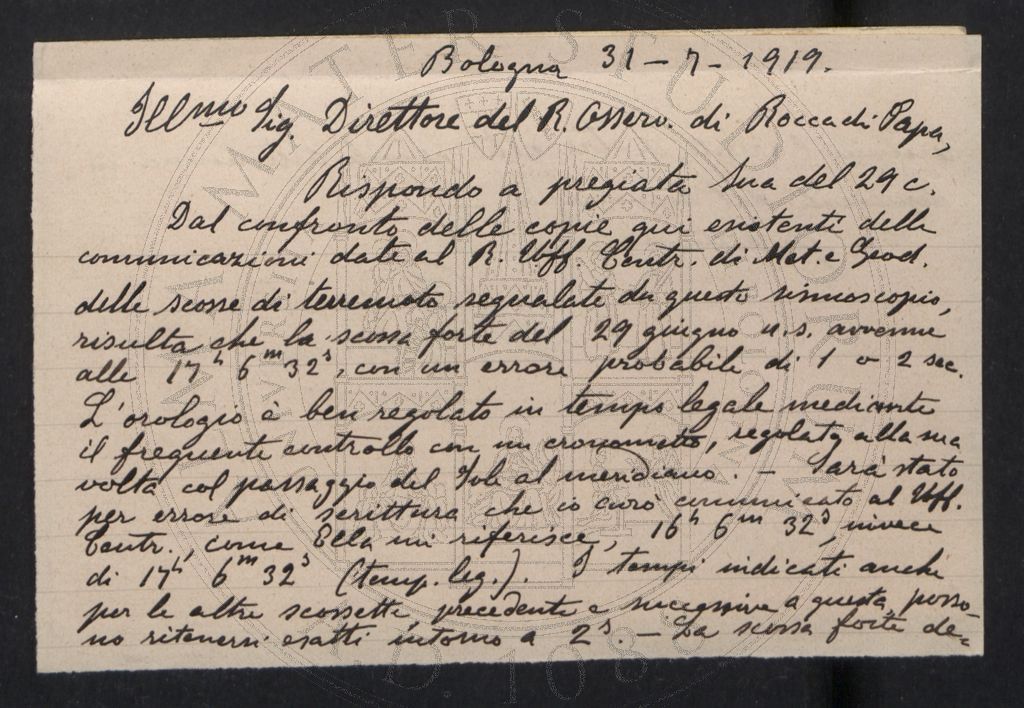 Bologna 31 - 7 - 1919.
Illmo Sig. Direttore del R. Osserv. di Rocca di Papa,
Rispondo a pregiata sua del 29 c.
Dal confronto delle copie qui esistenti delle
comunicazioni date al R. Uff. Centr. di Met. e Geod.
delle scosse di terremoto segnalate da questo sismoscopio,
risulta che la scossa forte del 29 giugno u.s. avvenne
alle 17h 6m 32s, con un errore probabile di 1 o 2 sec.
L'orologio è ben regolato in tempo legale mediante
il frequente controllo con un cronometro, regolato alla sua
volta col passaggio del Sole al meridiano. - Sarà stato
per errore di scrittura che io avrò comunicato al Uff.
Centr., come Ella mi riferisce, 16h 6m 32s, invece
di 17h 6m 32s (temp. leg.). I tempi indicati anche
per le altre scossette precedenti e successive a questa, posso-
no ritenersi esatti intorno a 2s. - La scossa forte de=
ALMA MATER STUDIORUM
A.D. 1088